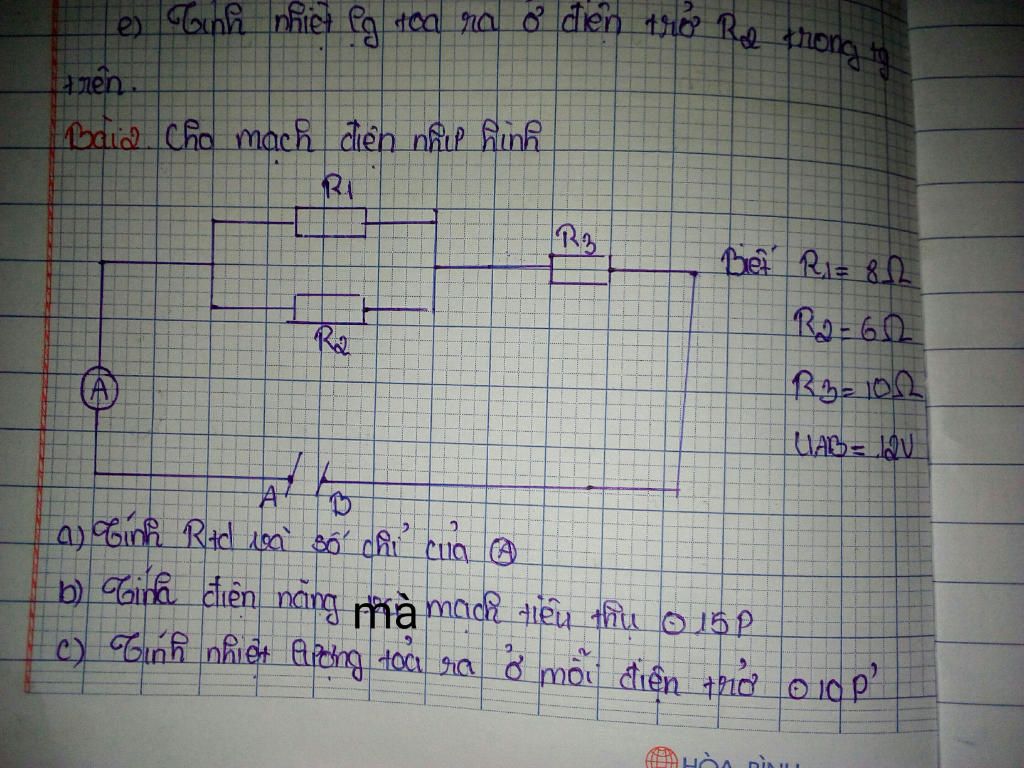 e) Tính nhiệt lg toả ra ở điện trở R2 trong tg
trên.
Bài 2. Cho mạch điện như hình
R1
R3
Biết R1 = 8Ω
R2 = 6Ω
R2
A
R3 = 10Ω
UAB = 12V
A B
a) Tính Rtđ và số chỉ của Ⓐ
b) Tính điện năng mà mạch tiêu thụ 15P
c) Tính nhiệt lượng toả ra ở mỗi điện trở 10P'
HÒA BÌNH